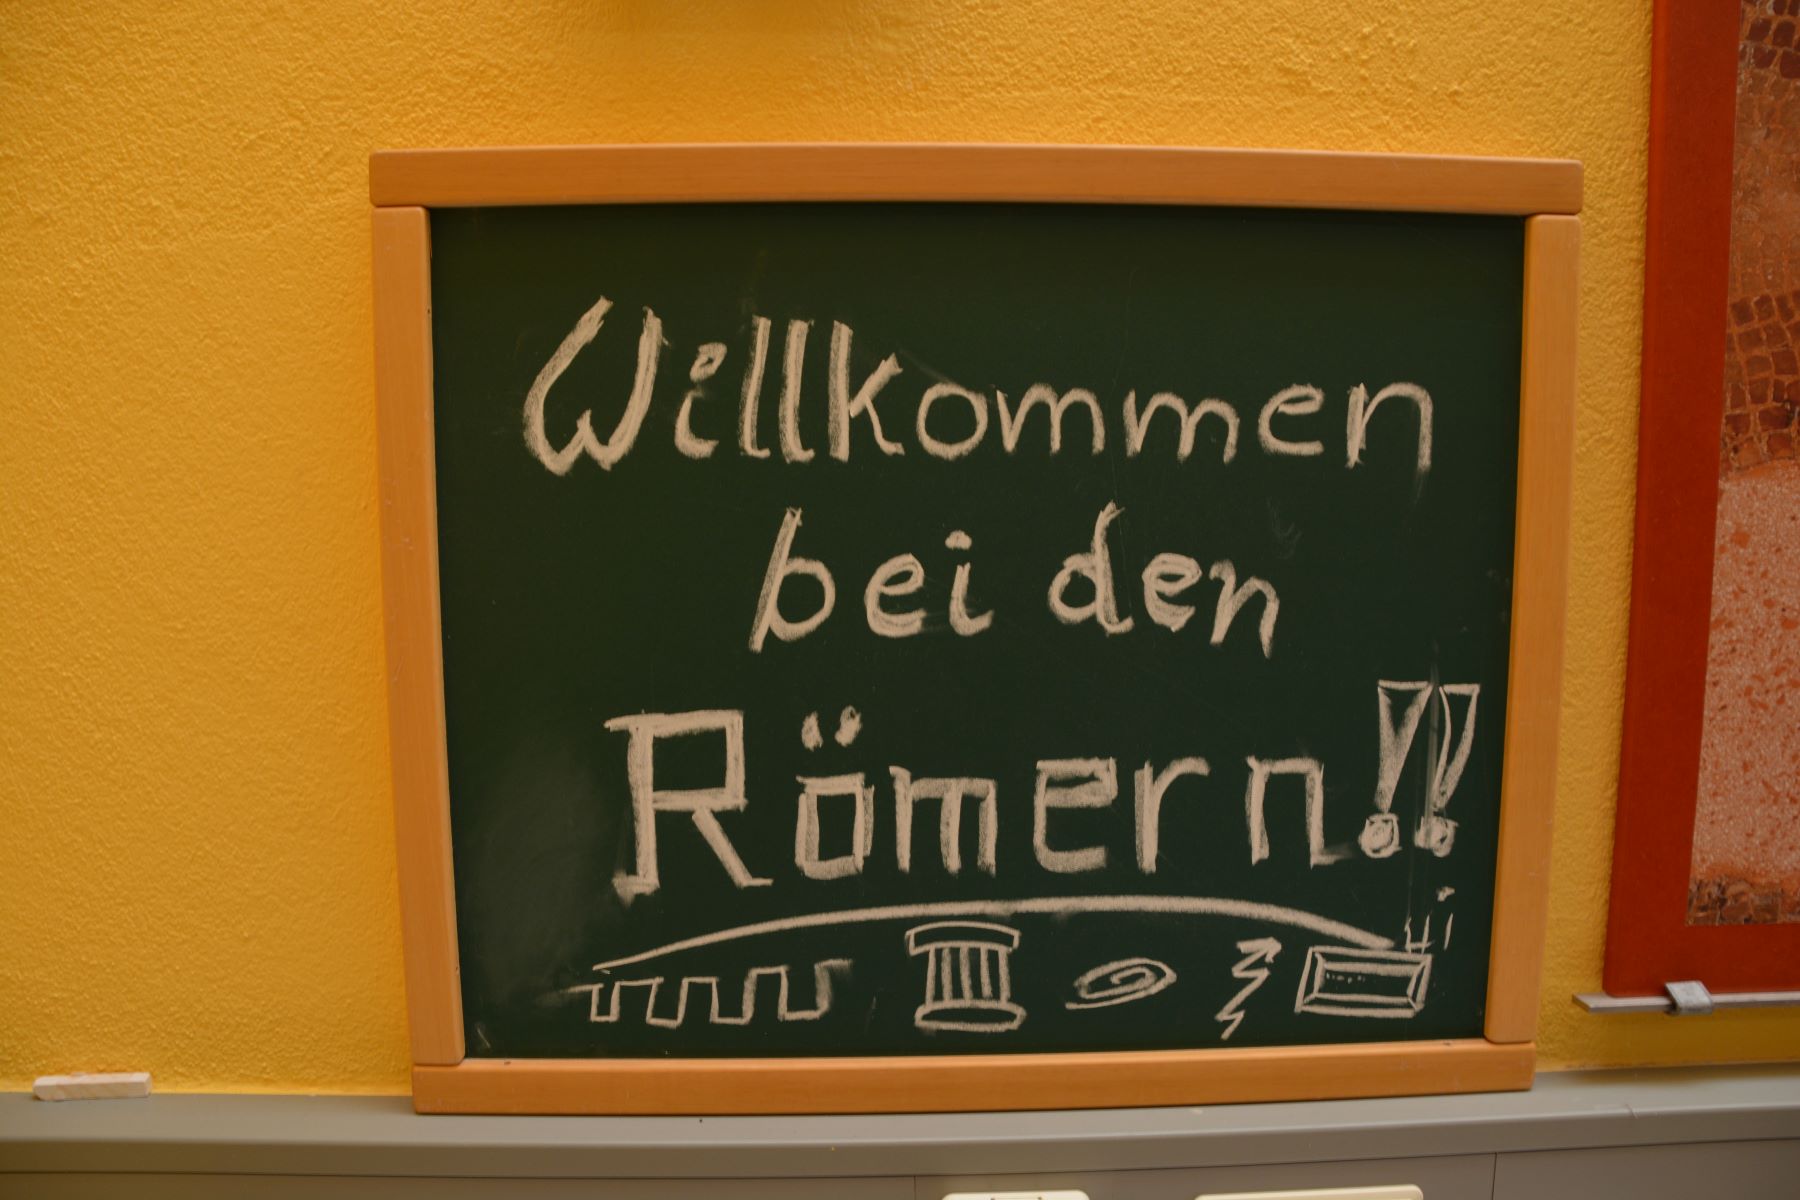 Willkommen
bei den
Römern!!